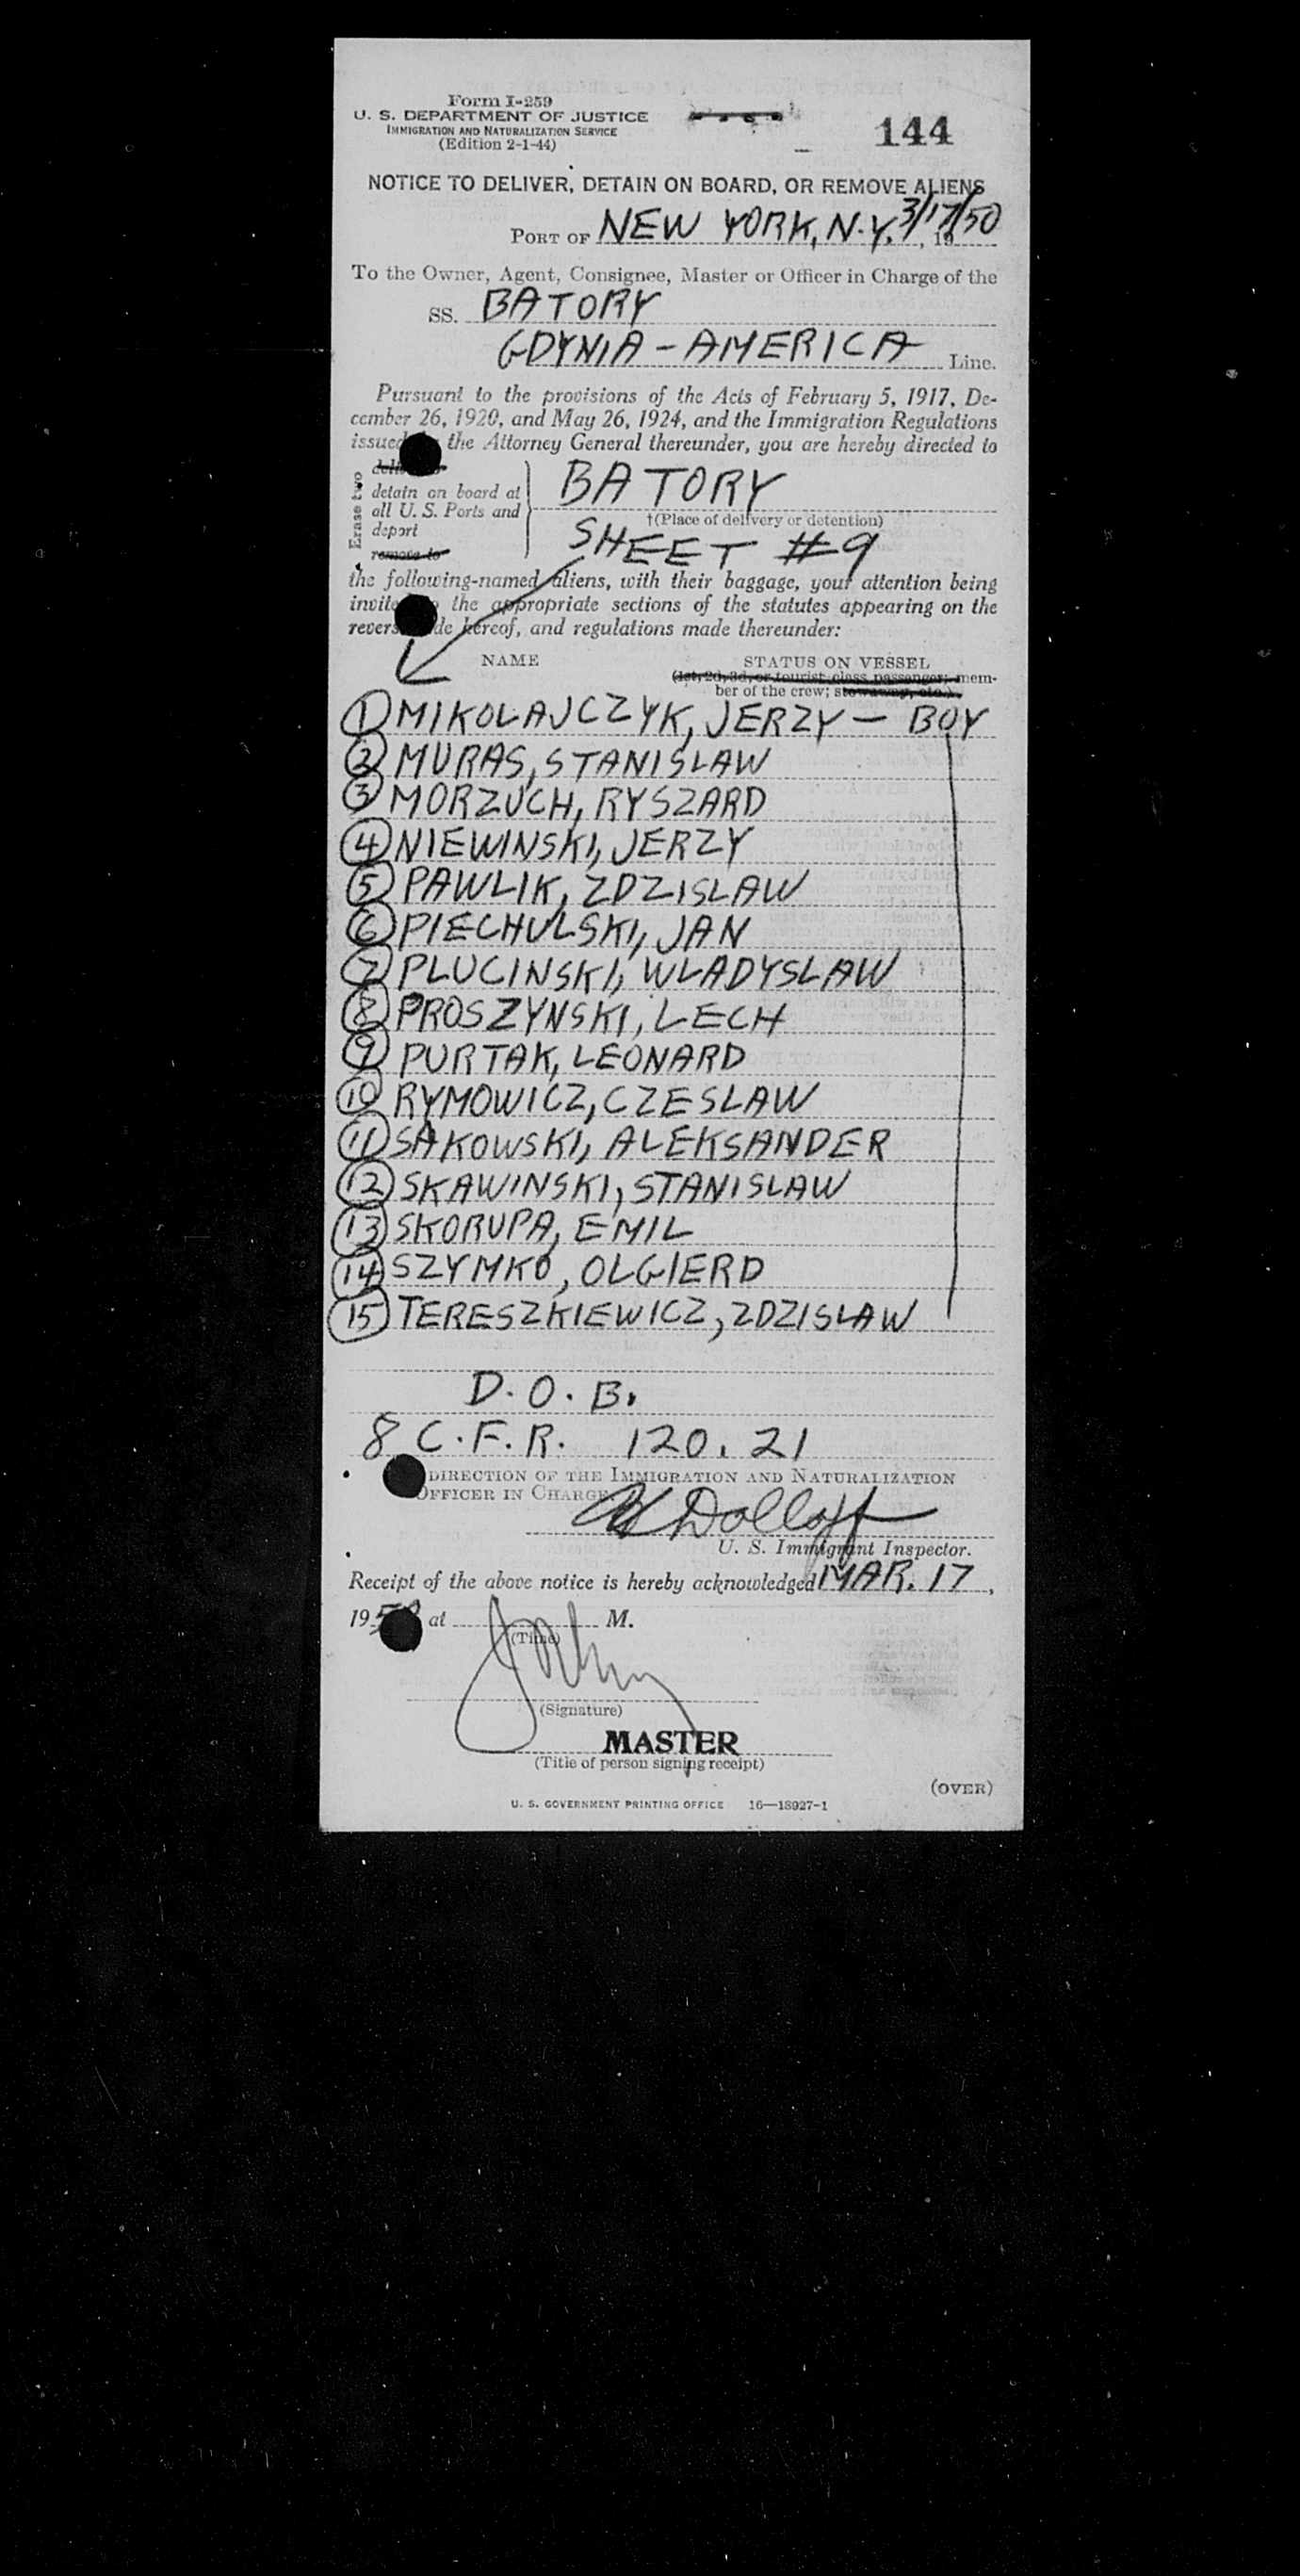 Form I-259
U. S. DEPARTMENT OF JUSTICE
IMMIGRATION AND NATURALIZATION SERVICE
(Edition 2-1-44)
144
NOTICE TO DELIVER, DETAIN ON BOARD, OR REMOVE ALIENS
PORT OF NEW YORK, N.Y. 3/17/50, 19
To the Owner, Agent, Consignee, Master or Officer in Charge of the
SS. BATORY
GDYNIA-AMERICA Line.
Pursuant to the provisions of the Acts of February 5, 1917, De-
cember 26, 1920, and May 26, 1924, and the Immigration Regulations
issued the Attorney General thereunder, you are hereby directed to
Erase two
detain on board at
all U. S. Ports and
deport
remove to
BATORY
†(Place of delivery or detention)
SHEET #9
the following-named aliens, with their baggage, your attention being
the appropriate sections of the statutes appearing on the
hereof, and regulations made thereunder:
NAME STATUS ON VESSEL
(1st, 2d, 3d, or tourist class passenger; mem-
ber of the crew; stowaway, etc.)
1 MIKOLAJCZYK, JERZY - BOY
2 MURAS, STANISLAW
3 MORZUCH, RYSZARD
4 NIEWINSKI, JERZY
5 PAWLIK, ZDZISLAW
6 PIECHULSKI, JAN
7 PLUCINSKI, WLADYSLAW
8 PROSZYNSKI, LECH
9 PURTAK, LEONARD
10 RYMOWICZ, CZESLAW
11 SAKOWSKI, ALEKSANDER
12 SKAWINSKI, STANISLAW
13 SKORUPA, EMIL
14 SZYMKO, OLGIERD
15 TERESZKIEWICZ, ZDZISLAW
D.O.B.
8 C.F.R. 120.21
DIRECTION OF THE IMMIGRATION AND NATURALIZATION
OFFICER IN CHARGE
Dolloff
U. S. Immigrant Inspector.
Receipt of the above notice is hereby acknowledged MAR. 17,
1950 at M.
(Time)
(Signature)
MASTER
(Title of person signing receipt)
(OVER)
U. S. GOVERNMENT PRINTING OFFICE 16—18927-1